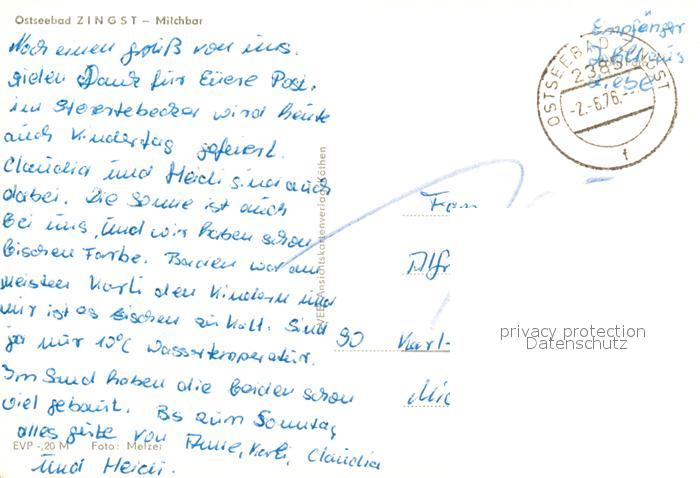 Ostseebad ZINGST – Milchbar
Noch einen gruß von uns.
vielen Dank für Euere Post.
im Stoertebecker wird heute
auch Kindertag gefeiert.
Claudia und Heidi sind auch
dabei. Die Sonne ist auch
bei uns, und wir haben schon
bischen Farbe. Baden war am
meisten Karli den Kindern und
mir ist es bischen zu kalt. Sind
ja nur 10°C Wassertemperatur.
Im Sand haben die beiden schon
viel gebaut. Bis zum Sonntag
alles gute von Anne, Karli, Claudia
und Heidi.
EVP -,20 M Foto: Melzer
VEB Ansichtskartenverlag Köthen
Empfänger
OSTSEEBAD ZINGST
2385
-2.-6.76.--
f
Fam
Alfr
90 Karl-
privacy protection
Datenschutz